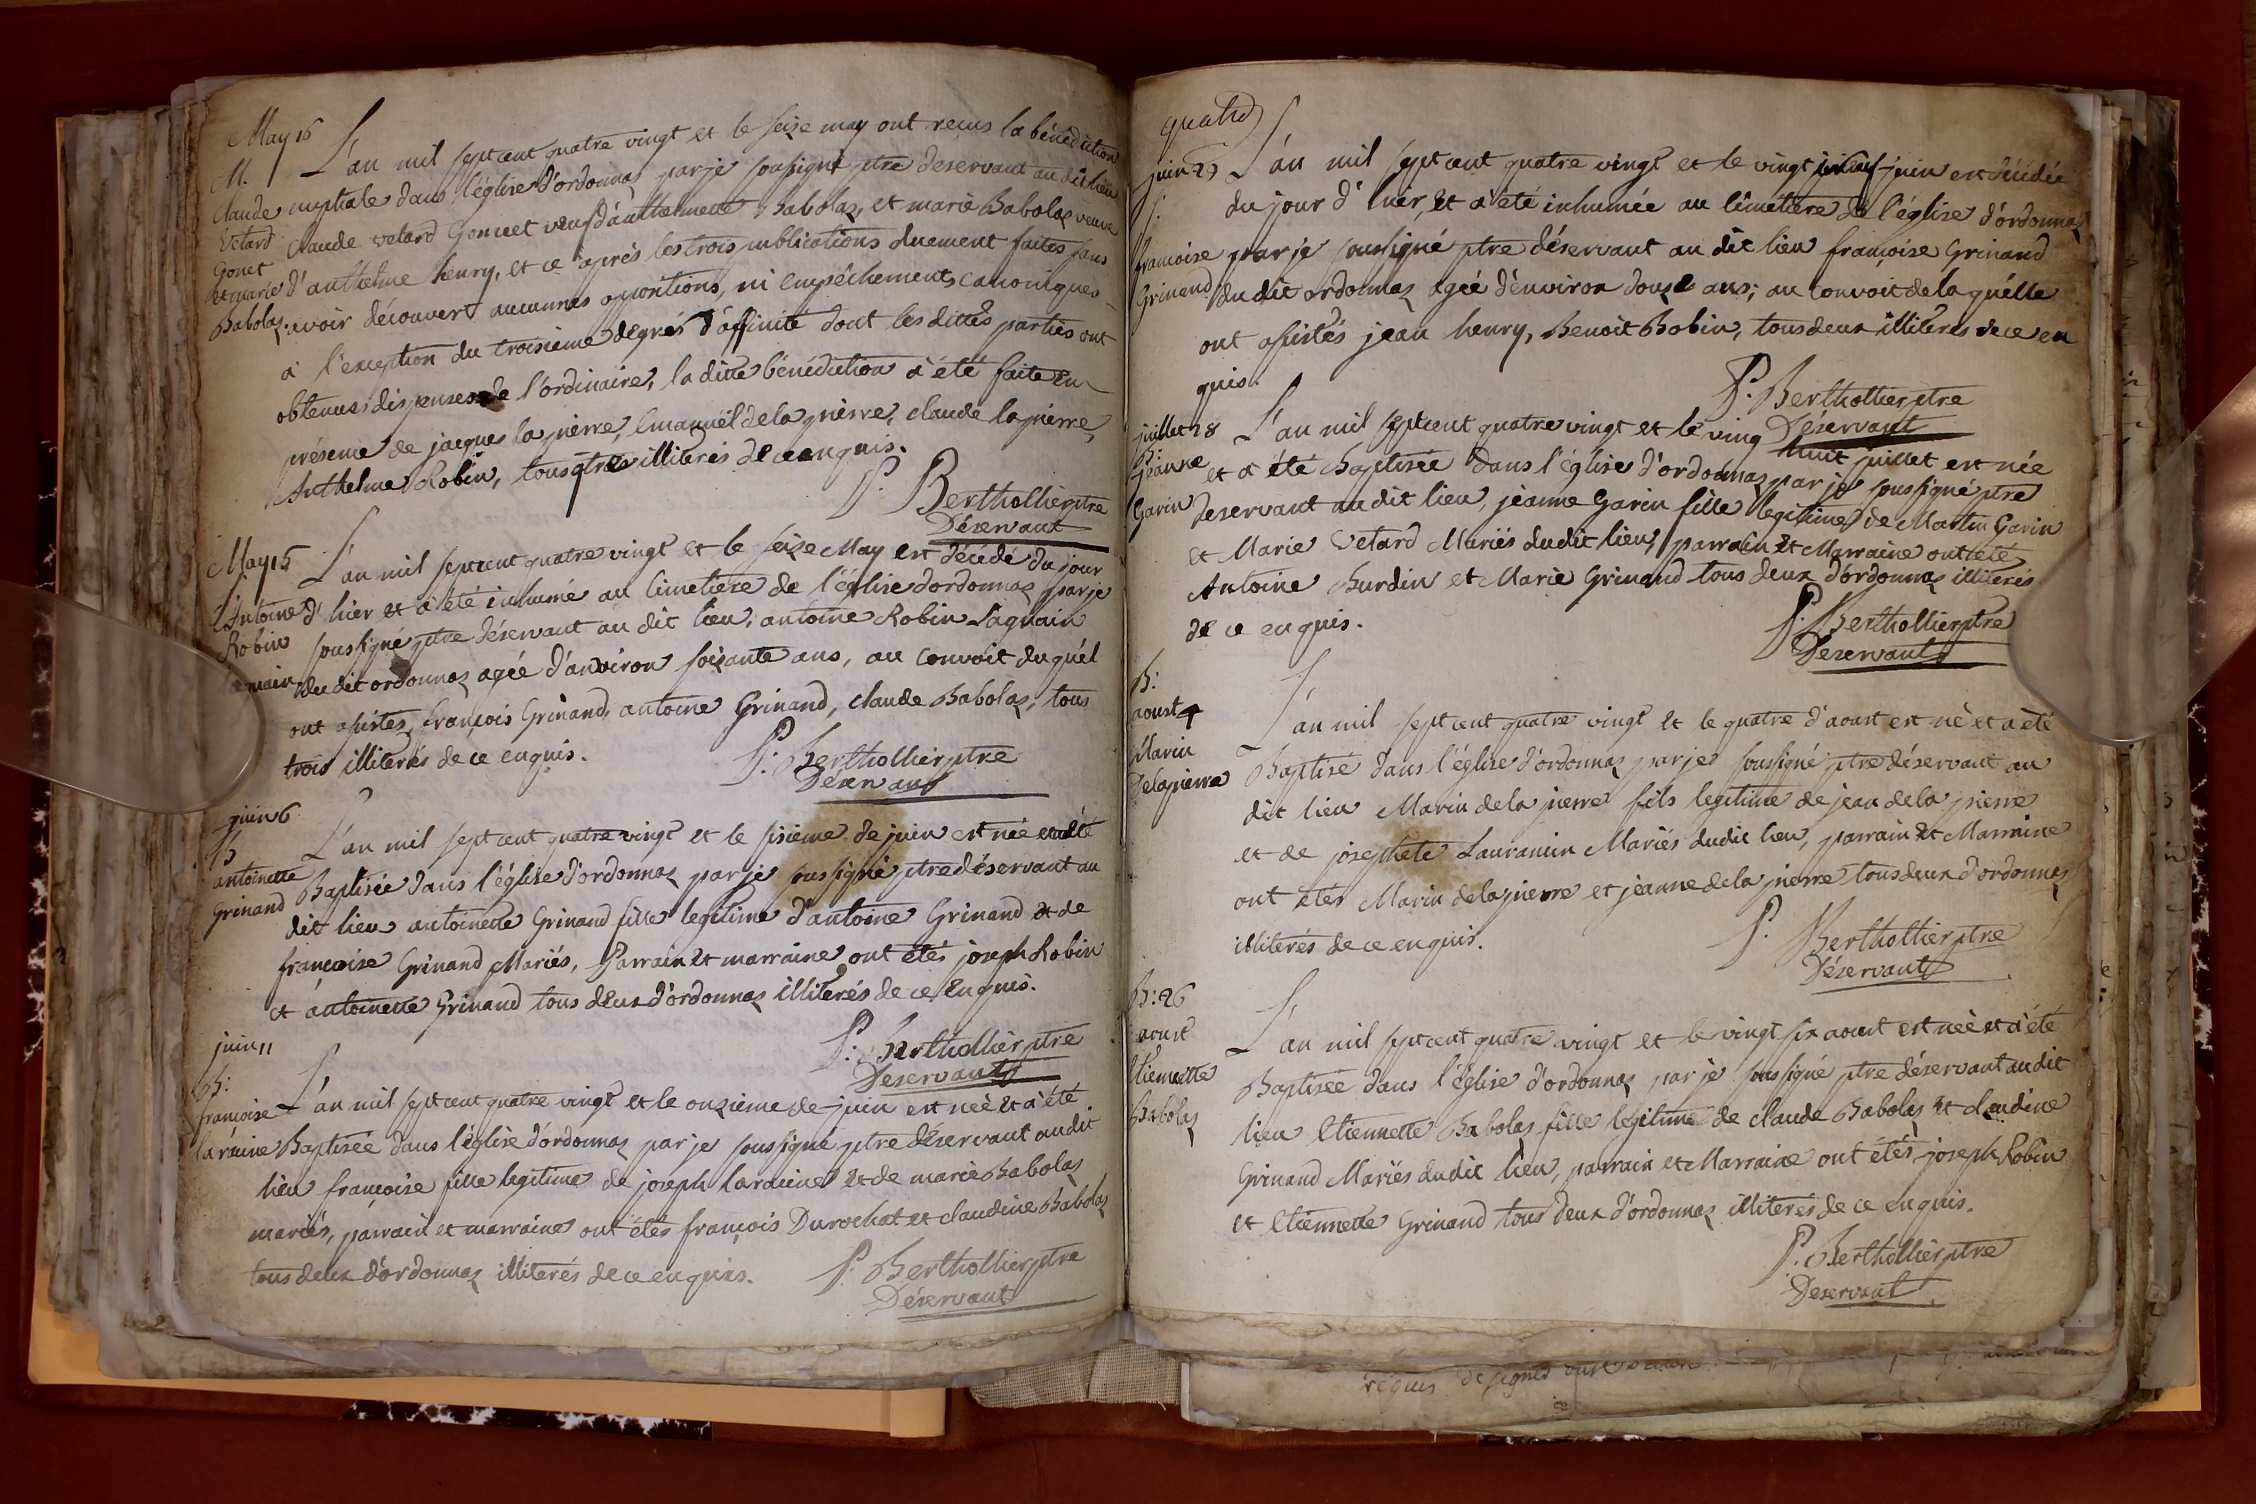 May 16
M.
Claude
vetard
Gonet
et marie
Babolaz.
L'an mil sept cent quatre vingt et le seize may ont recus la bénédiction
nuptiale dans l'église d'ordonnaz par je soussigné ptre deservant au dit lieu
Claude vetard Gonnet veuf d'anthelmette Babolaz, et marie Babolaz veuve
d'anthelme henry, et ce après les trois publications duement faites sans
avoir découvert aucunnes oppositions, ni empêchements canoniques
à l'exception du troisieme degrés d'affinité dont les dittes parties ont
obtenus dispense de l'ordinaire, la ditte bénédiction a été faite en
présence de jacques la pierre, Emanuël de la pierre, claude la pierre,
Anthelme Robin, tous qtres illiterés de ce enquis.
P. Berthollier ptre
Déservant
May 15
S.
Antoine
Robin
L'an mil sept cent quatre vingt et le seize May est décédé du jour
d'hier et a été inhumé au cimetiere de l'église d'ordonnaz par je
soussigné ptre déservant au dit lieu, antoine Robin
du dit ordonnaz agée d'anviron soixante ans, au convoit duquél
ont assistés, françois Grinand, antoine Grinand, claude Babolaz, tous
trois illiterés de ce enquis.
P. Berthollier ptre
Déservant
juin 6
B
antoinette
Grinand
L'an mil sept cent quatre vingt et le sisieme de juin est née et a été
Baptisée dans l'église d'ordonnaz par je soussigné ptre déservant au
dit lieu antoinette Grinand fille legitime d'antoine Grinand et de
francoise Grinand Mariés, Parrain et marraine ont étés joseph Robin
et antoinette Grinand tous deux d'ordonnaz illiterés de ce enquis.
P. Berthollier ptre
Deservant
juin 11
B:
françoise
laraine
L'an mil sept cent quatre vingt et le onzieme de juin est neè et a été
Baptisée dans l'église d'ordonnaz par je soussigné ptre déservant au dit
lieu françoise fille legitime de joseph laraine et de marie Babolaz
mariés, parrain et marraine ont étés françois Durochat et claudine Babolaz
tous deux d'ordonnaz illiterés de ce enquis.
P. Berthollier ptre
Déservant
quatre
juin 29
S.
francoise
Grinand
L'an mil sept cent quatre vingt et le vingt neuf juin est décédée
du jour d'hier, et a été inhumée au cimetiere de l'église d'ordonnaz
par je soussigné ptre déservant au dit lieu françoise Grinand
du dit ordonnaz agée d'environ douze ans; au convoit de laquélle
ont assistés jean henry, Benoit Bobin, tous deux illiterés de ce en
quis.
P. Berthollier ptre
Déservant
juillet 28
B:
Jeanne
Garin
L'an mil sept cent quatre vingt et le ving huit juillet est née
et a été Baptisée dans l'église d'ordonnaz par je soussigné ptre
deservant au dit lieu, jeanne Garin fille legitime de Martin Garin
et Marie Vetard Mariés du dit lieu, parrain et Marraine ont étés
Antoine Burdin et Marie Grinand tous deux d'ordonnaz illiterés
de ce enquis.
P. Berthollier ptre
Deservant
B:
aoust 4
Marin
Delapierre
L'an mil sept cent quatre vingt et le quatre d'aoust est nè et a été
Baptisé dans l'église d'ordonnaz par je soussigné ptre déservant au
dit lieu Marin de la pierre fils legitime de jean de la pierre
et de josephete Mariés du dit lieu, parrain et Marraine
ont étés Marin de la pierre et jeanne de la pierre tous deux d'ordonnaz
illiterés de ce enquis.
P. Berthollier ptre
Déservant
B: 26
aoust
Etiennette
Babolaz
L'an mil sept cent quatre vingt et le vingt six aoust est neè et a été
Baptisée dans l'église d'ordonnaz par je soussigné ptre déservant au dit
lieu Etiennette Babolaz fille legitime de claude Babolaz et claudine
Grinand Mariés du dit lieu, parrain et Marraine ont étés joseph Robin
et Etiennette Grinand tous deux d'ordonnaz illiterés de ce enquis.
P. Berthollier ptre
Deservant
requis de signer